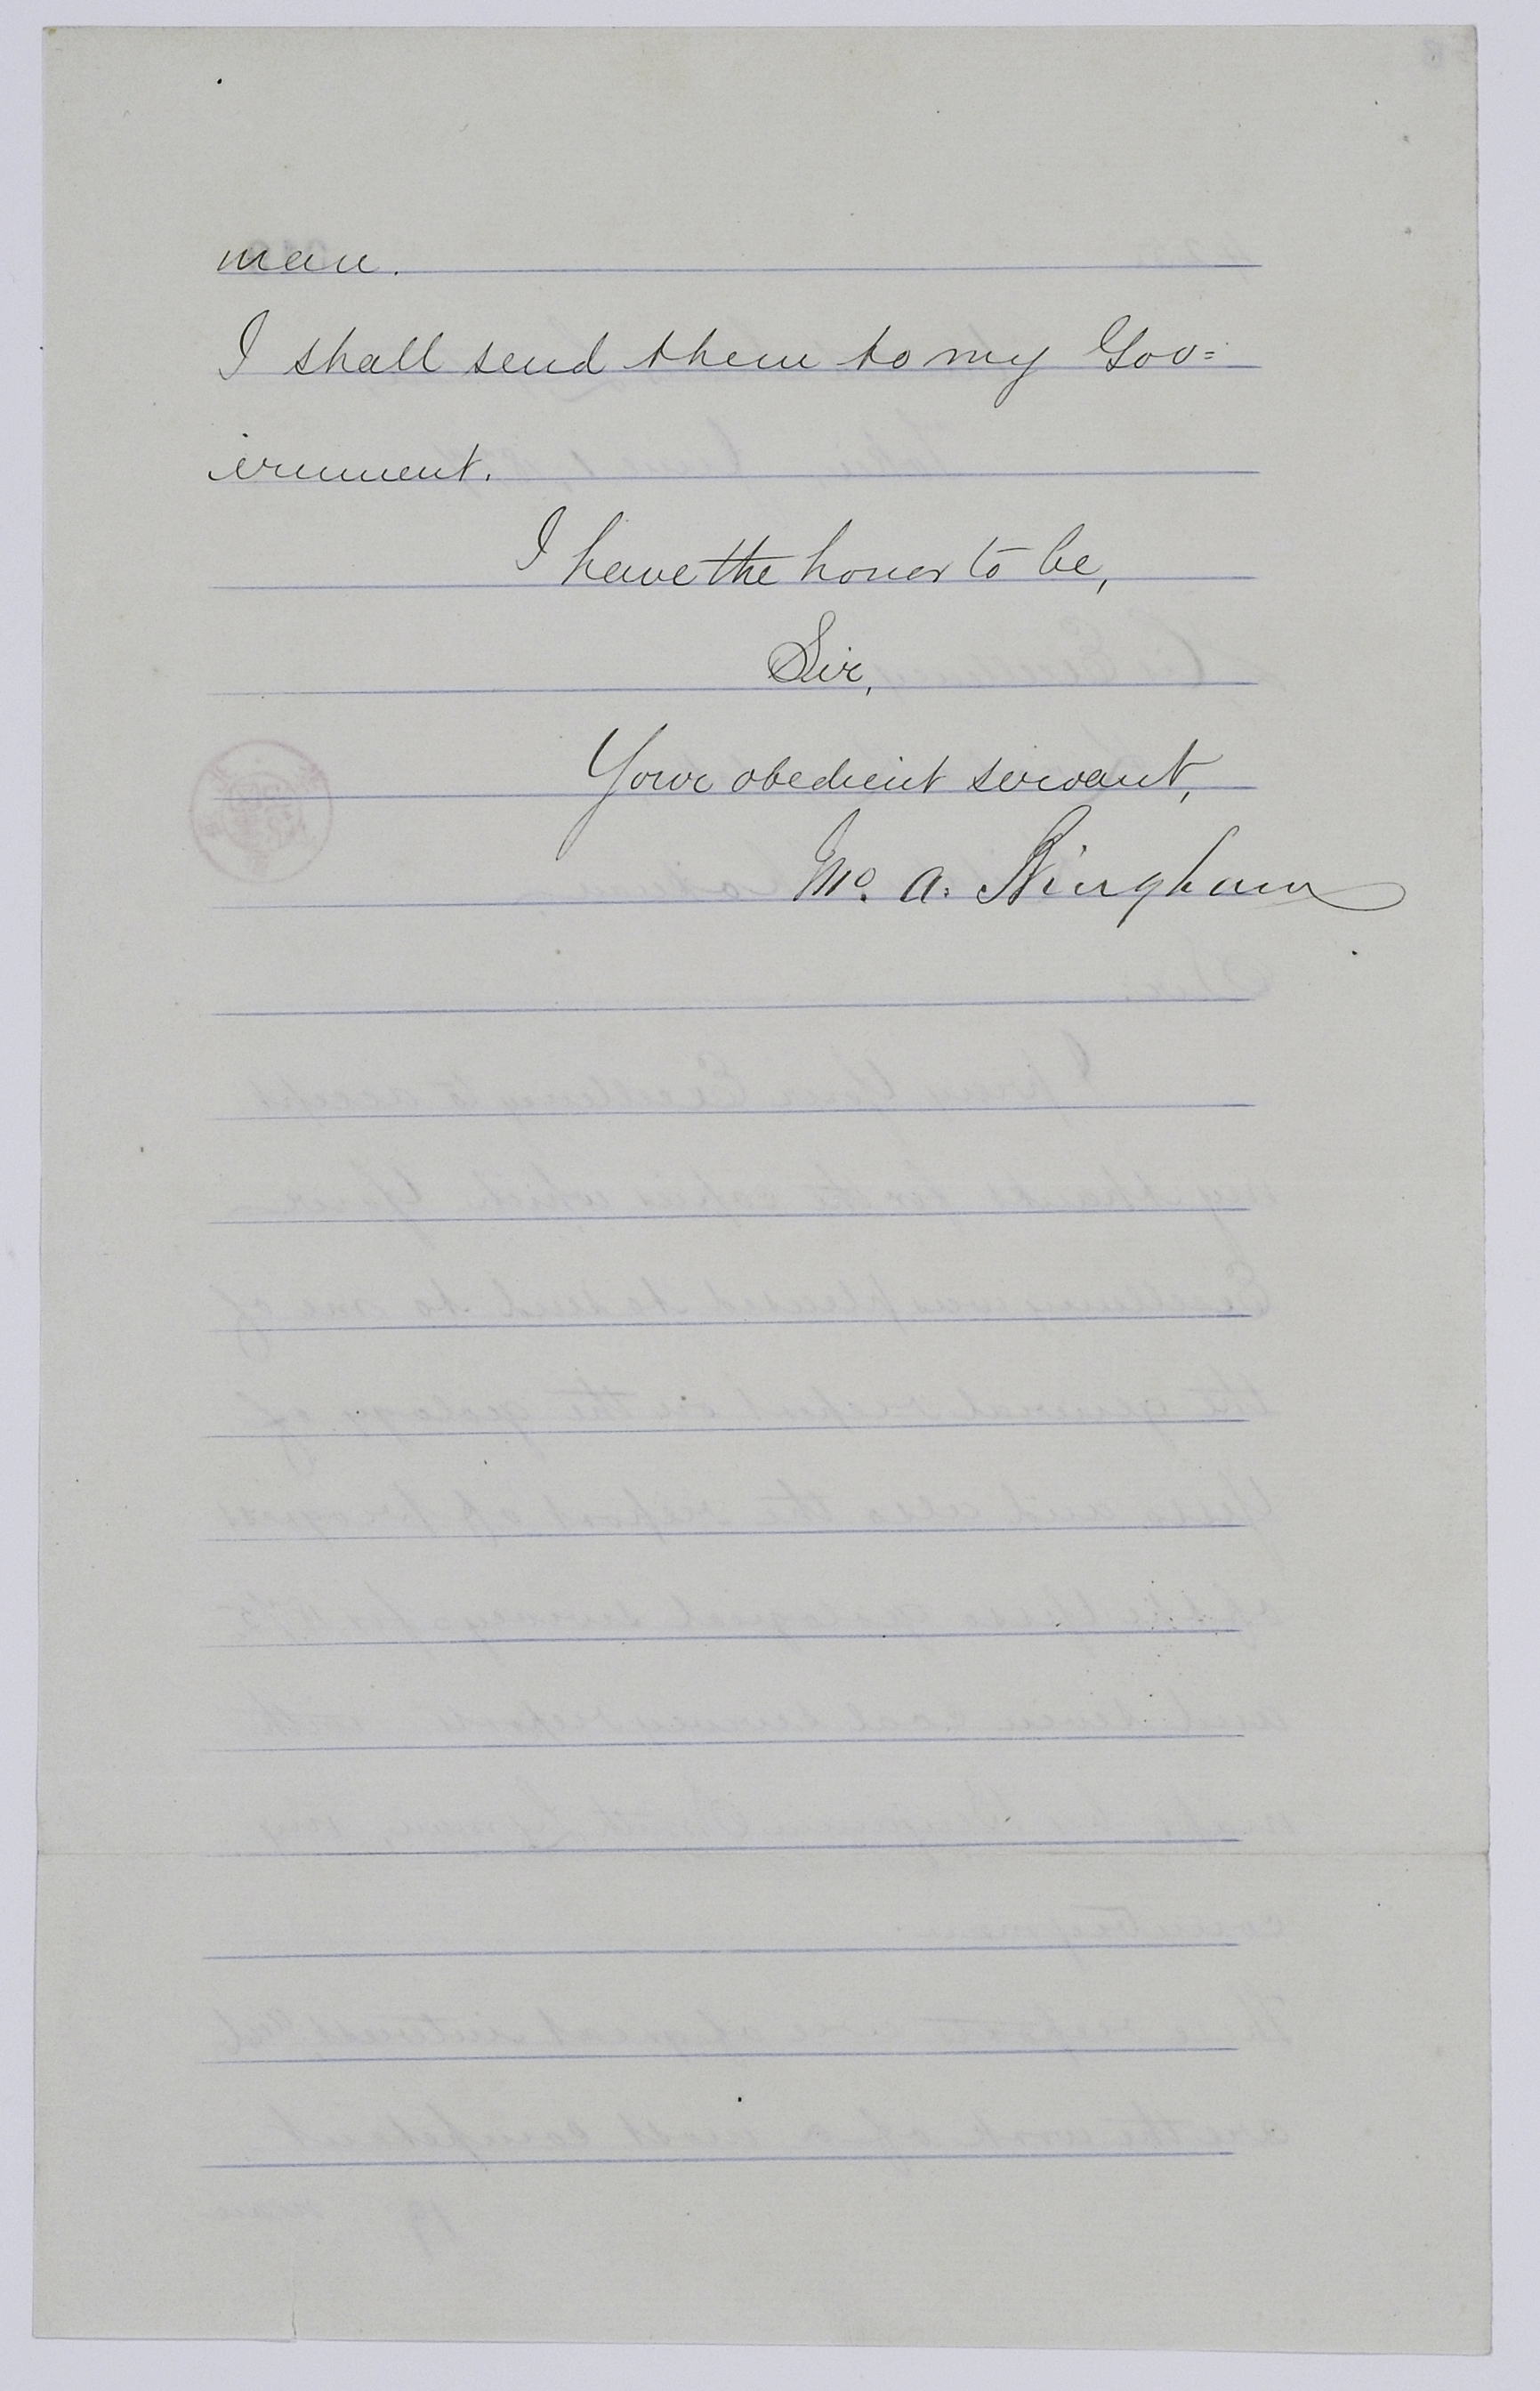 man.
I shall send them to my Gov=
ernment.
I have the honor to be,
Sir,
Your obedient servant,
Jno. A. Bingham